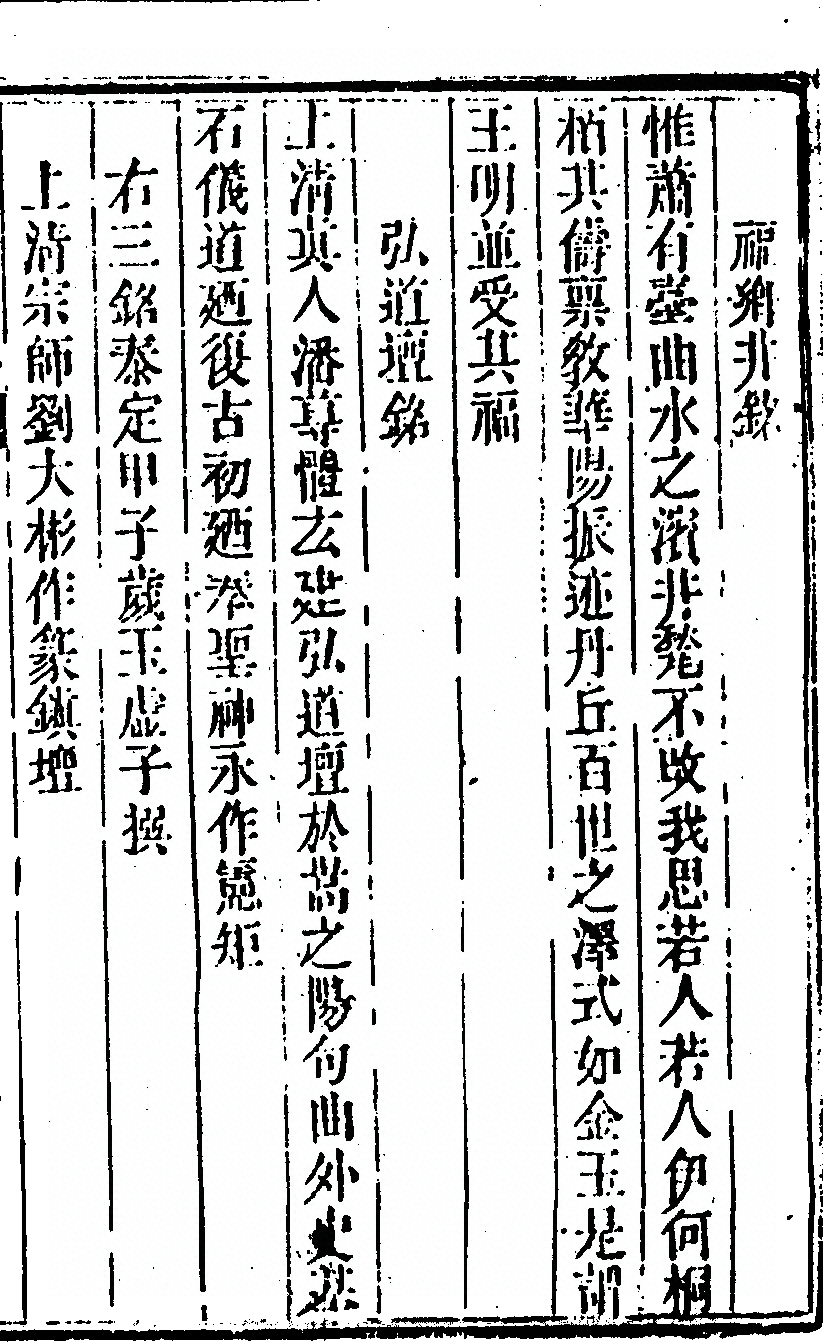 福鄉井銘
惟蕭有臺曲水之濱井甃不收我思若人若人伊何桐
栢其儔禀教華陽振迹丹丘百世之澤式如金玉是謂
王明並受其福
弘道壇銘
上清真人潘尊體玄建弘道壇於嵩之陽句曲外史
石儀道廼復古初廼奉聖神永作憲矩
右三銘泰定甲子歲玉虛子撰
上清宗師劉大彬作篆鎮壇